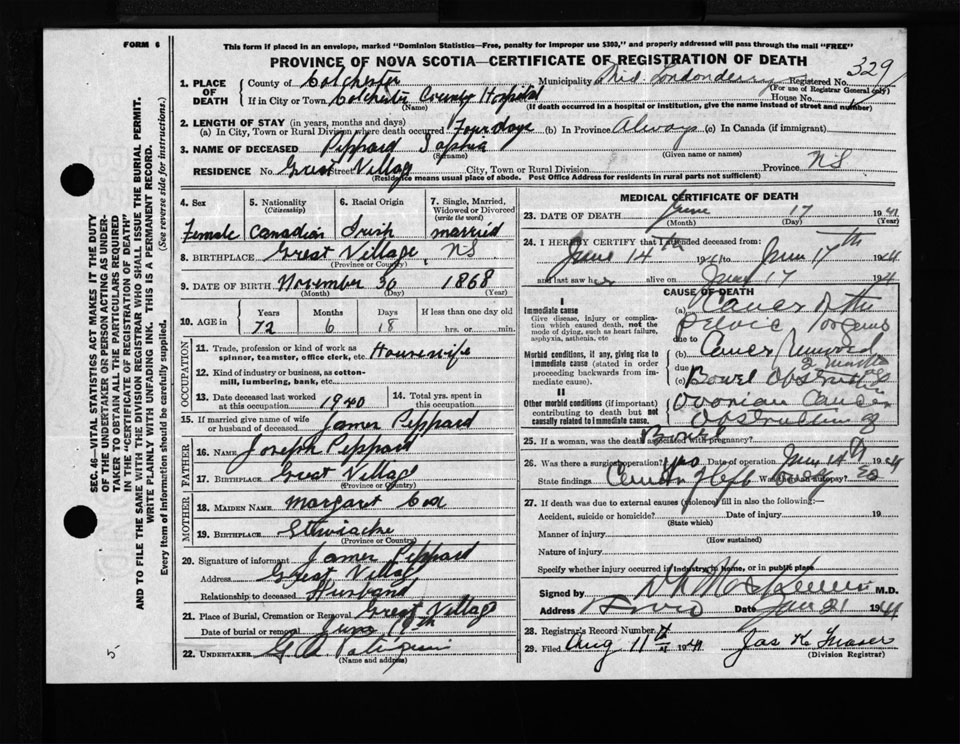 FORM 6
This form if placed in an envelope, marked "Dominion Statistics—Free, penalty for improper use $300," and properly addressed will pass through the mail "FREE"
PROVINCE OF NOVA SCOTIA—CERTIFICATE OF REGISTRATION OF DEATH
SEC. 46—VITAL STATISTICS ACT MAKES IT THE DUTY
OF THE UNDERTAKER OR PERSON ACTING AS UNDER-
TAKER TO OBTAIN ALL THE PARTICULARS REQUIRED
IN THE "CERTIFICATE OF REGISTRATION OF DEATH"
AND TO FILE THE SAME WITH THE DIVISION REGISTRAR WHO SHALL ISSUE THE BURIAL PERMIT.
WRITE PLAINLY WITH UNFADING INK. THIS IS A PERMANENT RECORD.
Every item of information should be carefully supplied. (See reverse side for instructions.)
1. PLACE OF DEATH
County of Colchester Municipality Registered No. 329
(For use of Registrar General only)
If in City or Town Colchester County Hospital House No.
(Name)
(If death occurred in a hospital or institution, give the name instead of street and number)
2. LENGTH OF STAY (in years, months and days)
(a) In City, Town or Rural Division where death occurred Four days (b) In Province Always (c) In Canada (if immigrant)
3. NAME OF DECEASED Pippard Sophia
(Surname) (Given name or names)
RESIDENCE No. Street Great Village City, Town or Rural Division Province NS
(Residence means usual place of abode. Post Office Address for residents in rural parts not sufficient)
4. Sex
Female
5. Nationality
(Citizenship)
Canadian
6. Racial Origin
Irish
7. Single, Married, Widowed or Divorced
(write the word)
married
8. BIRTHPLACE Great Village NS
(Province or Country)
9. DATE OF BIRTH November 30 1868
(Month) (Day) (Year)
10. AGE in Years Months Days If less than one day
72 6 18 hrs. or min.
OCCUPATION
11. Trade, profession or kind of work as spinner, teamster, office clerk, etc. Housewife
12. Kind of industry or business, as cotton-mill, lumbering, bank, etc.
13. Date deceased last worked at this occupation 1940
14. Total yrs. spent in this occupation
15. If married give name of wife or husband of deceased James Pippard
FATHER
16. Name Joseph Peppard
17. Birthplace Great Village
(Province or Country)
MOTHER
18. MAIDEN NAME Margaret Cox
19. BIRTHPLACE Stewiacke
(Province or Country)
20. Signature of informant James Pippard
Address Great Village
Relationship to deceased Husband
21. Place of Burial, Cremation or Removal Great Village
Date of burial or removal June 18th
22. UNDERTAKER
(Name and address)
MEDICAL CERTIFICATE OF DEATH
23. DATE OF DEATH June 17 1941
(Month) (Day) (Year)
24. I HEREBY CERTIFY that I attended deceased from:
June 14th 1941 to June 17th 1941
and last saw her alive on June 17 1941
CAUSE OF DEATH
I
Immediate cause
Give disease, injury or complication which caused death, not the mode of dying, such as heart failure, asphyxia, asthenia, etc
(a) Cancer of the Pelvic organs
due to
Morbid conditions, if any, giving rise to immediate cause (stated in order proceeding backwards from immediate cause).
(b) Cancer removed 2 months
due
(c) Bowel Obstruction
II
Other morbid conditions (if important) contributing to death but not causally related to immediate cause.
Ovarian Cancer
Obstruction of
Bowel
25. If a woman, was the death associated with pregnancy?
26. Was there a surgical operation? Yes Date of operation June 14th 1941
State findings Was there an autopsy? no
27. If death was due to external causes (violence) fill in also the following:—
Accident, suicide or homicide? Date of injury 19
(State which)
Manner of injury
(How sustained)
Nature of injury
Specify whether injury occurred in industry, in home, or in public place
Signed by M.D.
Address Truro Date June 21 1941
28. Registrar's Record Number
29. Filed Aug 11th 1941 Jas K Fraser
(Division Registrar)
5